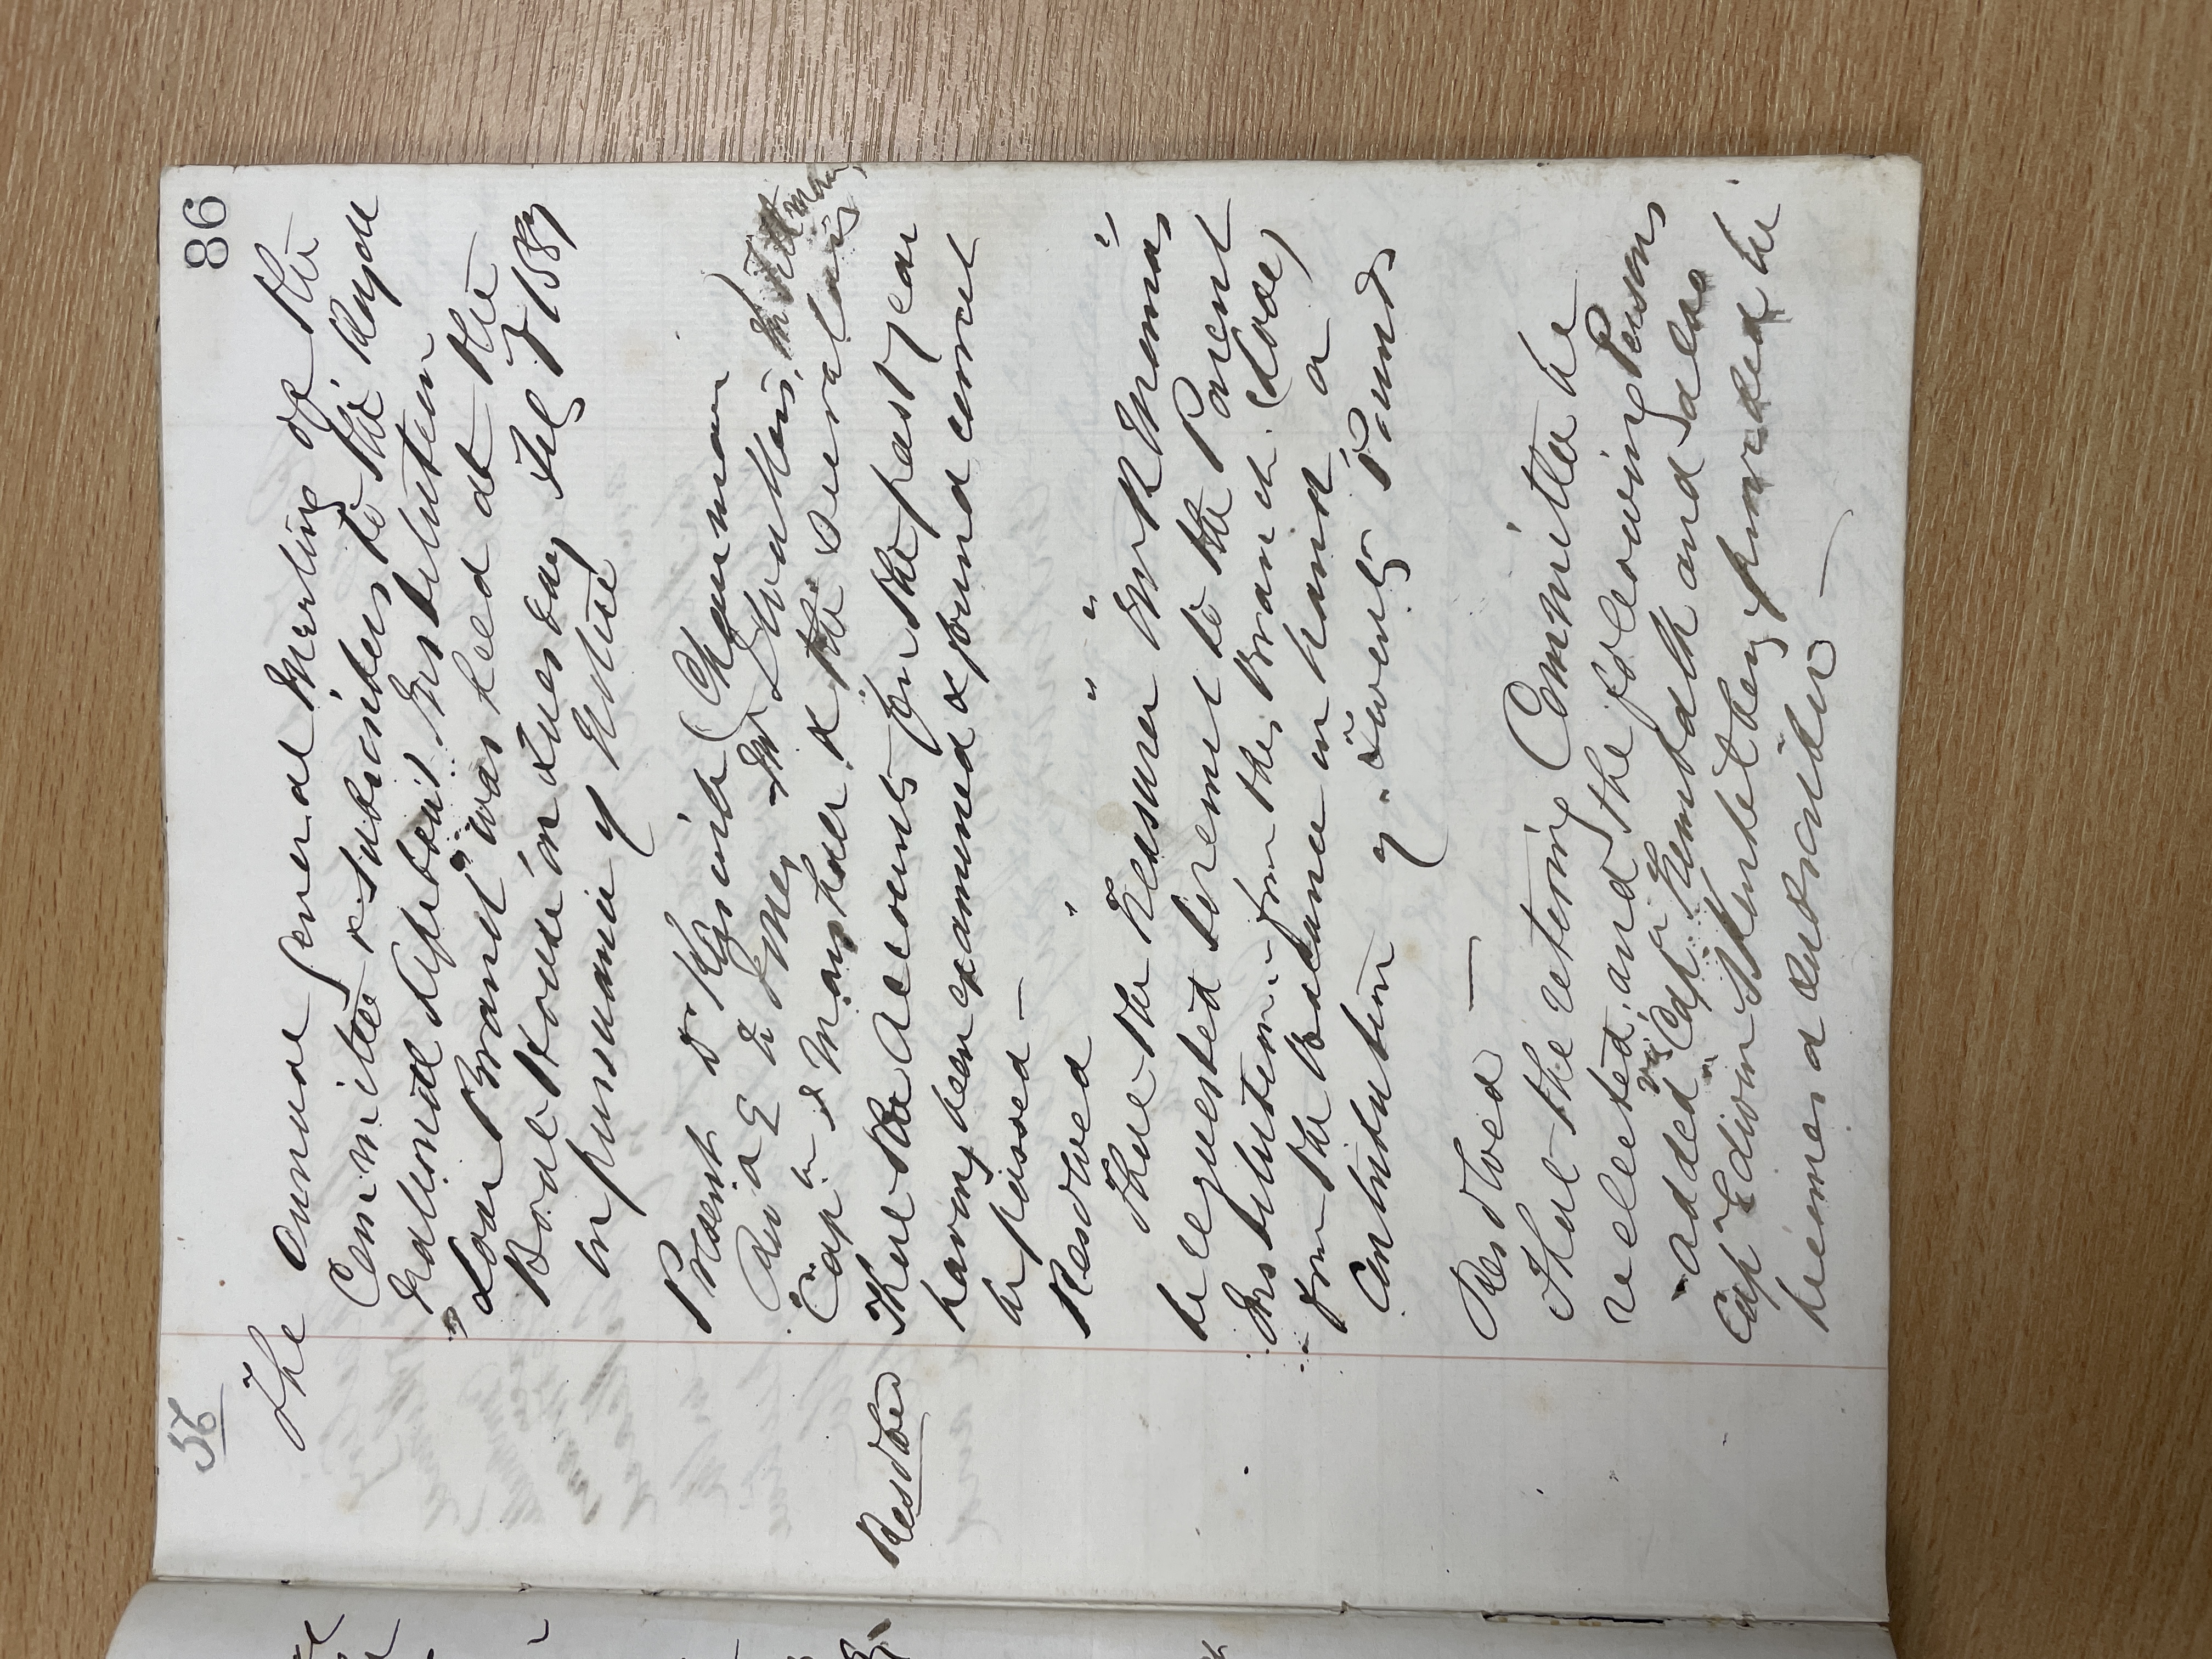 56
86
The Annual General Meeting of the
Committee & Subscribers to the Royal
National Life boat Institution
Looe Branch was held at the
Boat House on Tuesday Feb 7 1887
in pursuance of Notice
Present Dr Kerswill (Chairman)
Rev a E
Capn & the several
Resolved That the Accounts for the past year
having been examined & found correct
be passed —
Resolved
That the Treasurer Mr R Thomas
be requested to remit to the Parent
Institution from this Branch (Looe)
from the Balance in hand a
Contribution of Twenty Pounds
Resolved —
That the retiring Committee be
reelected, and the following Persons
added viz Capn and also
Capn Edwin that they provided he
becomes a subscriber —